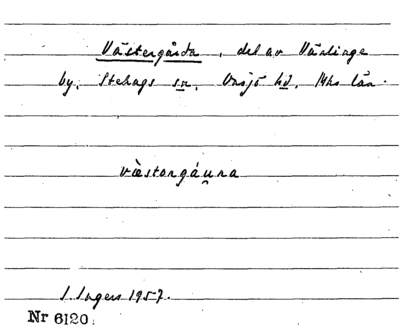 Västergårda, del av Vänlinge
by, Stehags sn, Onsjö hd, Mhs län.
västongáu̯na
S. Ingers 1957.
Nr 6120.